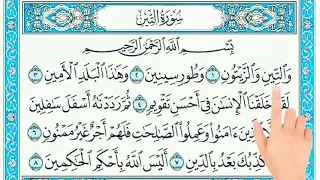 سُورَةُ التِّينِ
بِسْمِ اللَّهِ الرَّحْمَٰنِ الرَّحِيمِ
وَالتِّينِ وَالزَّيْتُونِ ١ وَطُورِ سِينِينَ ٢ وَهَٰذَا الْبَلَدِ الْأَمِينِ ٣
لَقَدْ خَلَقْنَا الْإِنسَانَ فِي أَحْسَنِ تَقْوِيمٍ ٤ ثُمَّ رَدَدْنَاهُ أَسْفَلَ سَافِلِينَ
٥ الَّذِينَ ءَامَنُوا وَعَمِلُوا الصَّالِحَاتِ فَلَهُمْ أَجْرٌ غَيْرُ مَمْنُونٍ ٦
يُكَذِّبُكَ بَعْدُ بِالدِّينِ ٧ أَلَيْسَ اللَّهُ بِأَحْكَمِ الْحَاكِمِينَ ٨